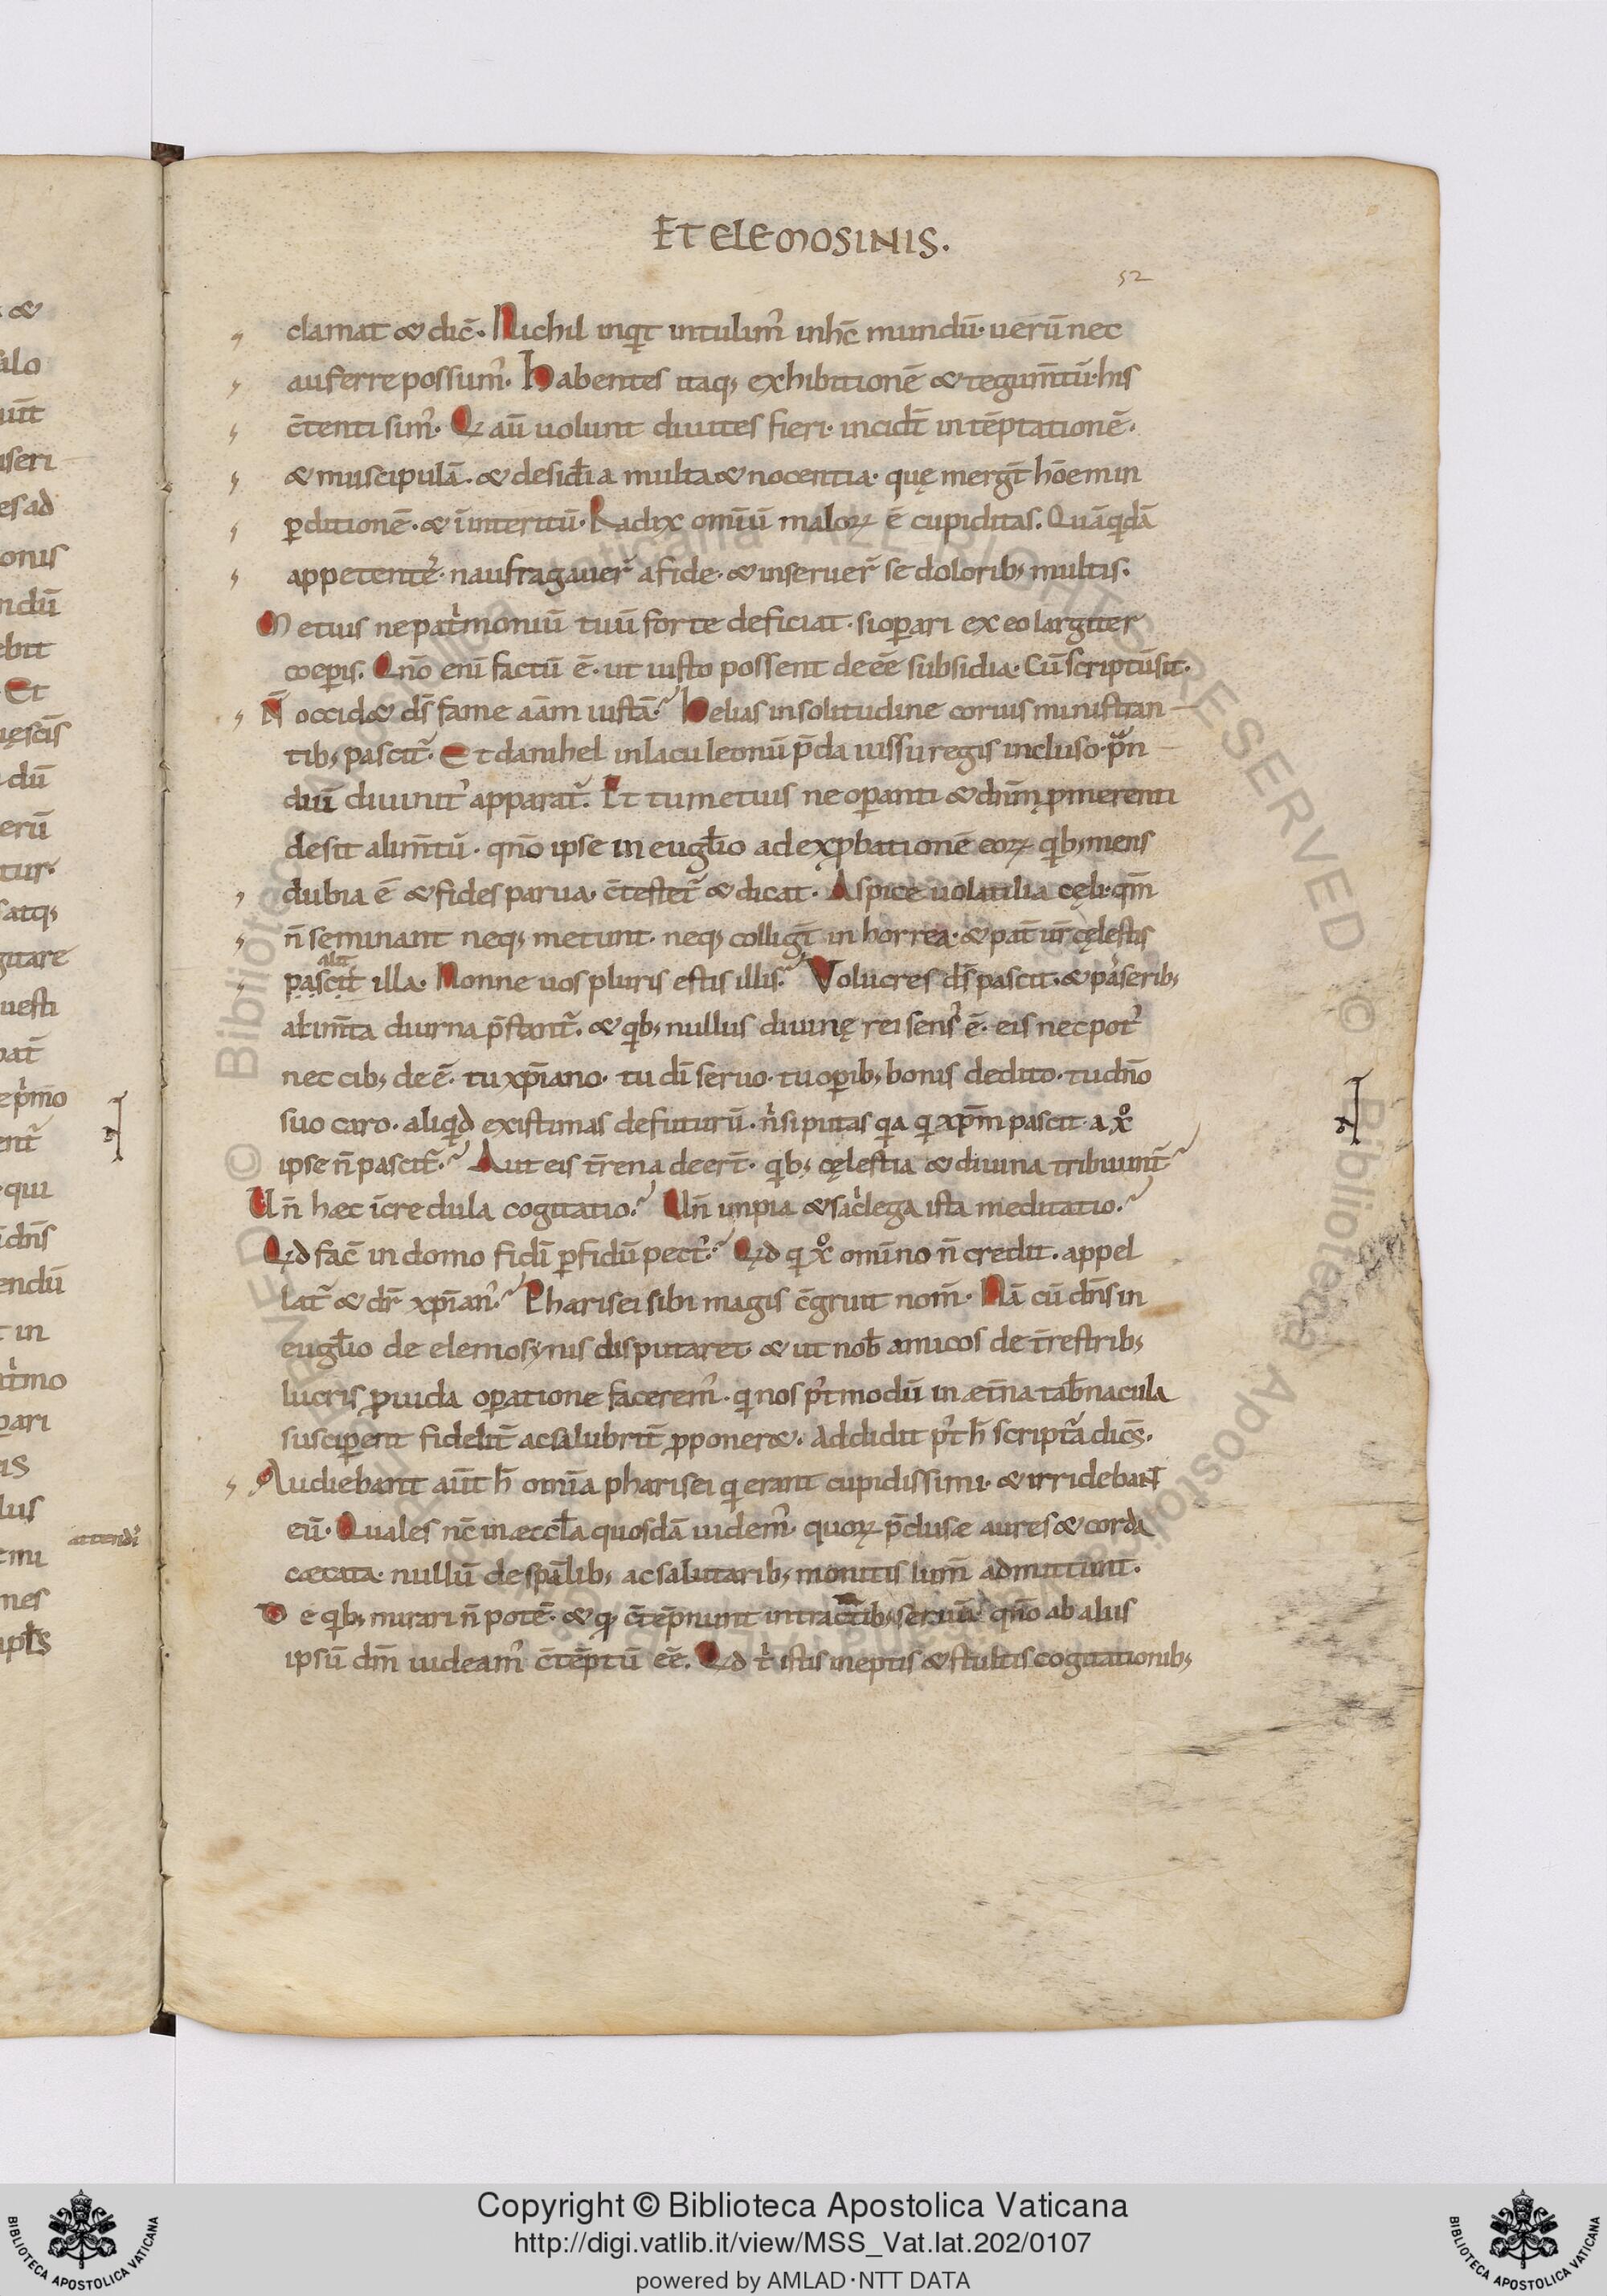 ET ELEMOSINIS.
52
clamat & dic̄. Nichil inqͥt intulim᷒ in hc̄ mundū. uerū nec
auferre possum᷒. Habentes itaq; exhibitionē & tegum̄tū. his
c̄tenti sim᷒. Q aū uolunt diuites fieri. incidt̄ in tēptationē.
& muscipulā. & desid̄ia multa & nocentia. quę merḡt hōem in
ꝑditionē. & īnteritū. Radix omīū maloꝝ ē cupiditas. Quā qͥdā
appetente᷒. naufragauer̄ a fide. & inseruer̄ se dolorib; multis.
Metuis ne patͥmoniū tuū forte deficiat. si oꝑari ex eo largiter
coeꝑis. Qn̄o enī factū ē. ut iusto possent deēē subsidia. Cū scriptū sit.
N̄ occid& ds̄ fame aām iustā. Helias in solitudine coruis ministran
tib; pascit᷑. Et danihel in lacu leonū p̄da iussu regis incluso. pͣn
diū diuinit᷒ apparat᷑. Et tu metuis ne oꝑanti & dn̄m ꝓmerenti
desit alim̄tū. qn̄o ipse in eugl̄io ad exꝓbationē eoꝝ qͥb; mens
dubia ē & fides parua. c̄testet᷑ & dicat. Aspice uolatilia cęli. qm̄
n̄ seminant neq; metunt. neq; colliḡt in horrea. & pat̄ ur̄ cęlestis
alit
pascit illa. Nonne uos pluris estis illis. Volucres ds̄ pascit. & paserib;
alim̄ta diurna p̄stant᷑. & qͥb; nullus diuinę rei sens᷒ ē. eis nec pot᷒
nec cib; deē. tu xp̄iano. tu dī seruo. tu oꝑib; bonis dedito. tu dn̄o
suo caro. aliqͥd existimas defuturū. nͥsi putas qͥa qͥ xp̄m pascit a xͦ
ipse n̄ pascit᷑. Aut eis t̄rena deer̄t. qͥb; cęlestia & diuina tribuunt᷑
Un̄ hæc īcredula cogitatio. Un̄ impia & sacͥlega ista meditatio.
Qͥd fac̄ in domo fidī ꝑfidū pect᷒. Qͥd qͥ xͦ omīno n̄ credit. appel
lat᷑ & dr̄ xp̄ian᷒. Pharisei sibi magis c̄gruit nom̄. Nā cū dn̄s in
eugl̄io de elemosynis disputaret & ut nob̄ amicos de t̄restrib;
lucris ꝓuida oꝑatione facerem᷒. qͥ nos p᷒tmodū in æt̄na tab̄nacula
susciꝑent fidelit̄ ac salubrit̄ ꝓponer&. Addidit p᷒t h̄ scriptā dic̄s.
Audiebant aūt h̄ omīa pharisei qͥ erant cupidissimi. & irridebant
eū. Quales nc̄ in æccl̄a quosdā uidem᷒. quoꝝ p̄clusæ aures & corda
cæcata. nullū de spīalib; ac salutarib; monitis lum̄ admittunt.
De qͥb; mirari n̄ potē. & qͥ c̄tēpnunt in tractib; seruū. qn̄o ab aliis
ipsū dm̄ uideam᷒ c̄tēptū eē. Qͥd tͥ istis ineptis & stultis cogitationib;
attend᷒
Copyright © Biblioteca Apostolica Vaticana
http://digi.vatlib.it/view/MSS_Vat.lat.202/0107
powered by AMLAD · NTT DATA
BIBLIOTECA APOSTOLICA VATICANA
BIBLIOTECA APOSTOLICA VATICANA